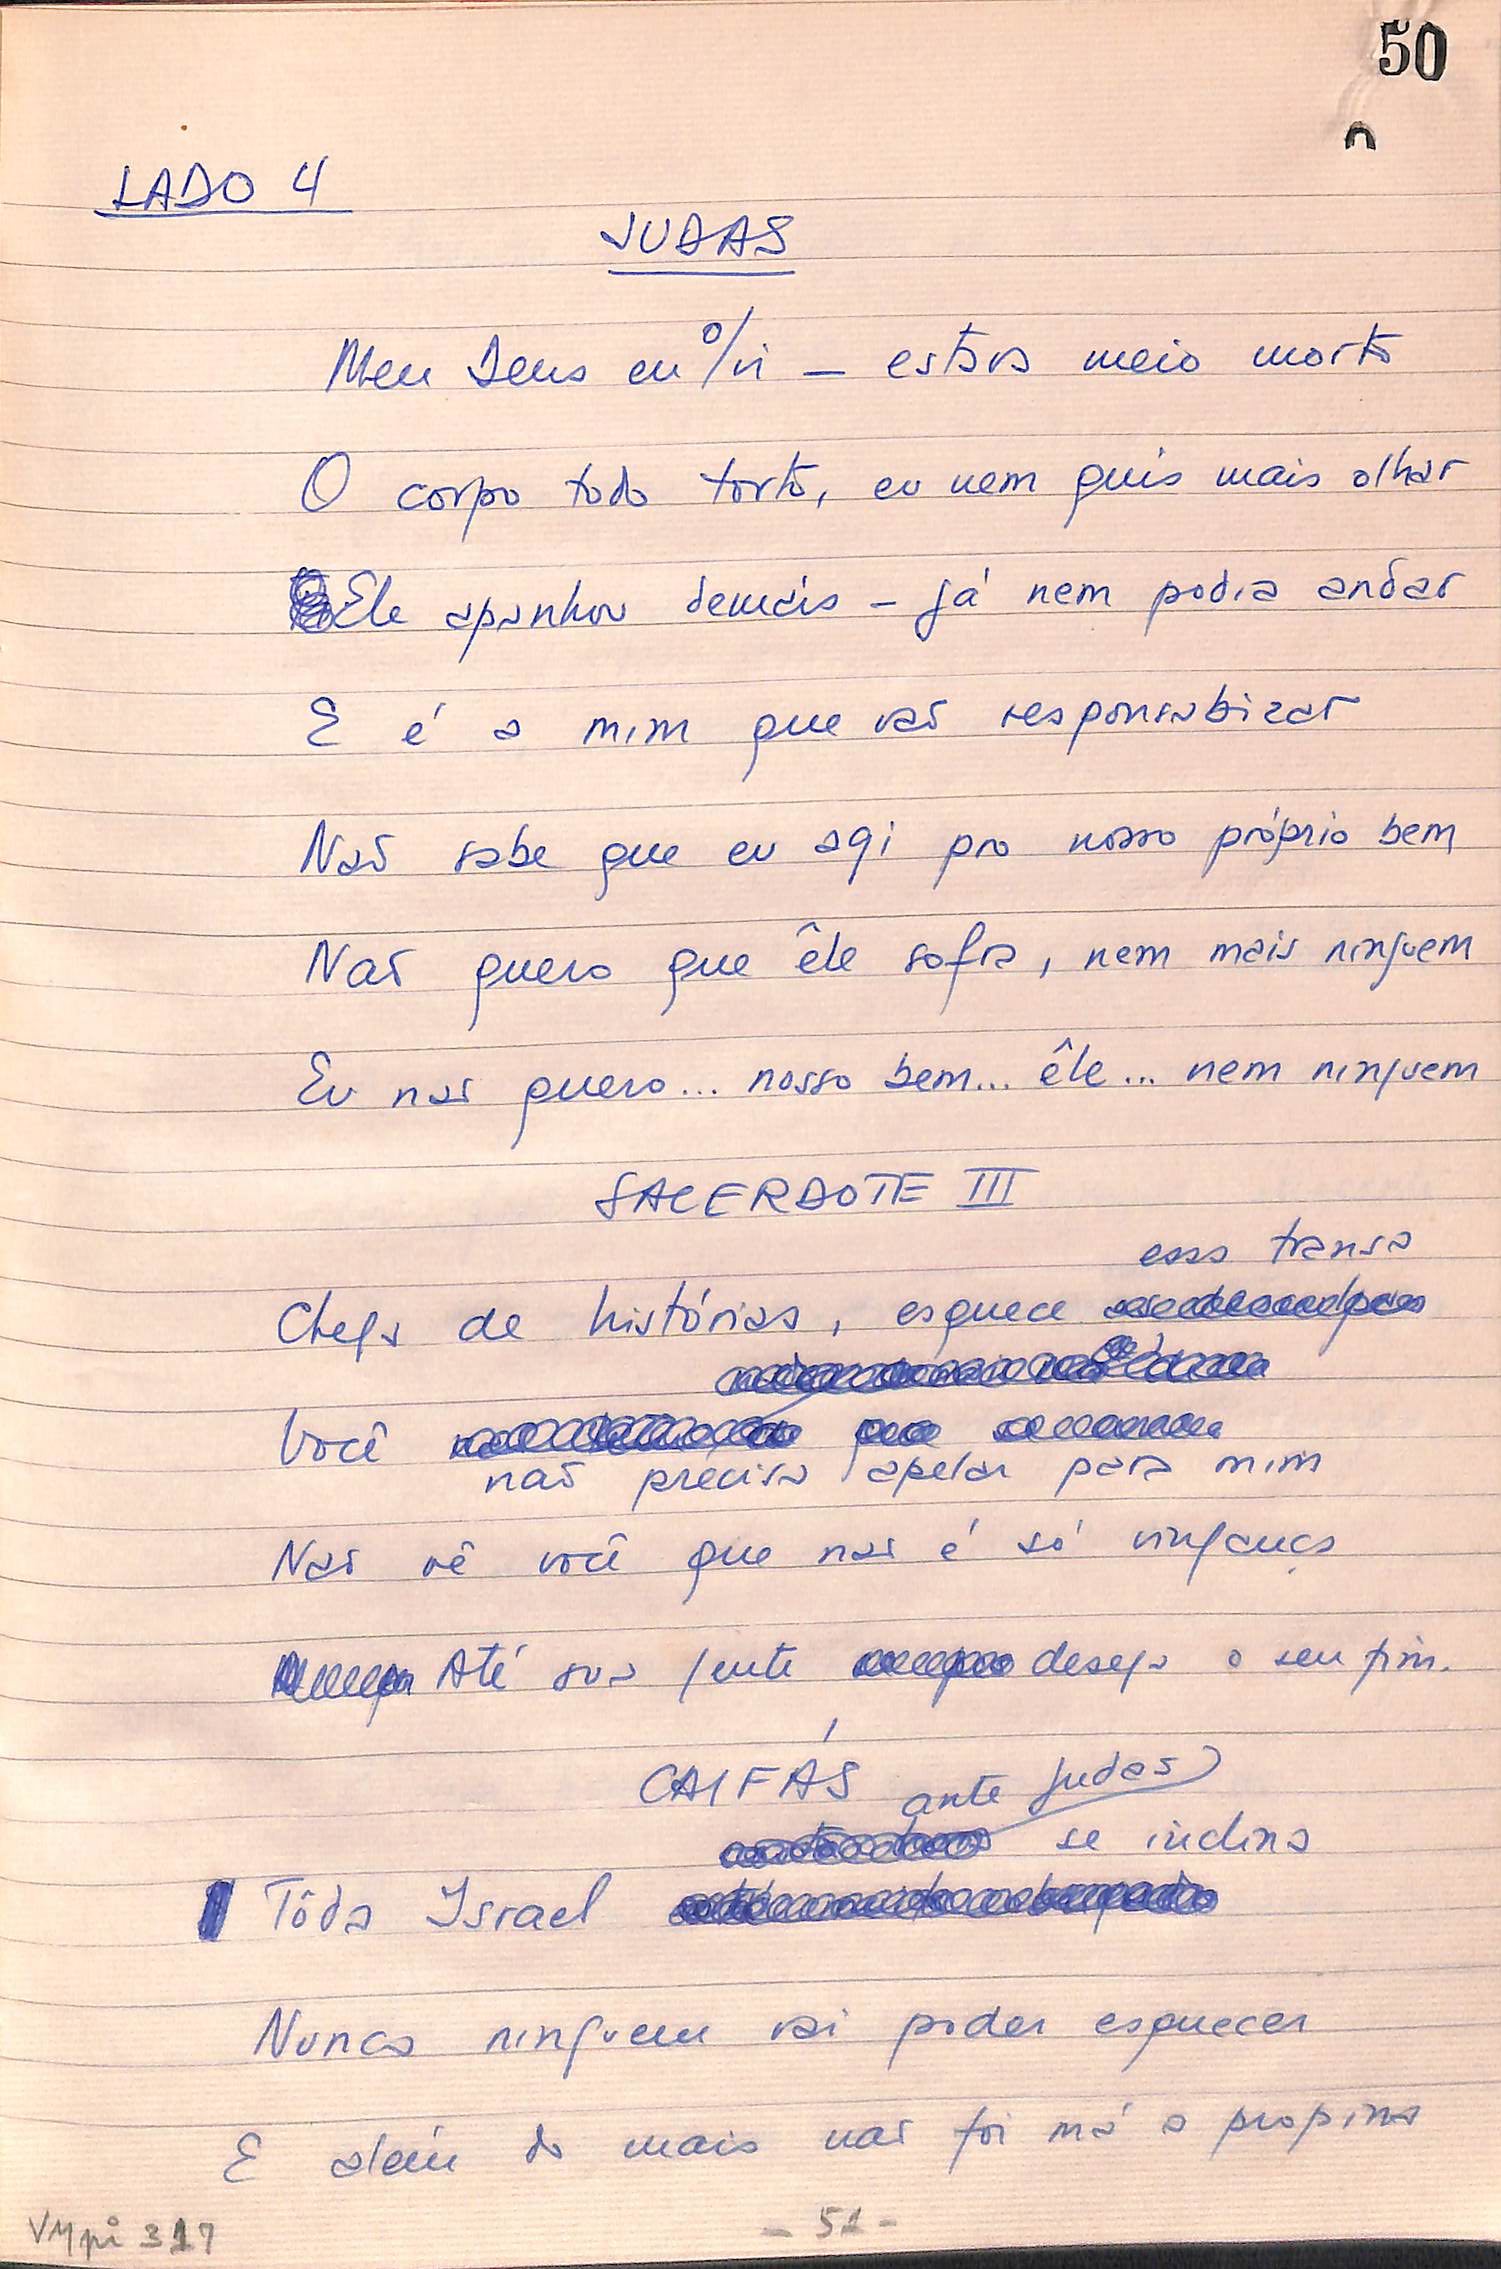 50
LADO 4
JUDAS
Meu Deus eu o/vi — estava meio morto
O corpo todo torto, eu nem quis mais olhar
Ele apanhou demais – já nem podia andar
E é a mim que vão responsabizar
Não sabe que eu agi pro nosso próprio bem
Não quero que êle sofra, nem mais ninguem
Eu não quero... nosso bem... êle... nem ninguem
SACERDOTE III
essa transa
Chega de histórias, esquece
Você
não precisa apelar para mim
Não vê você que não é só vingança
Até sua gente deseja o seu fim.
CAIFÁS
ante Judas
se inclina
Tôda Israel
Nunca ninguem vai poder esquecer
E além do mais não foi má a propina
VMpi 317
- 51 -